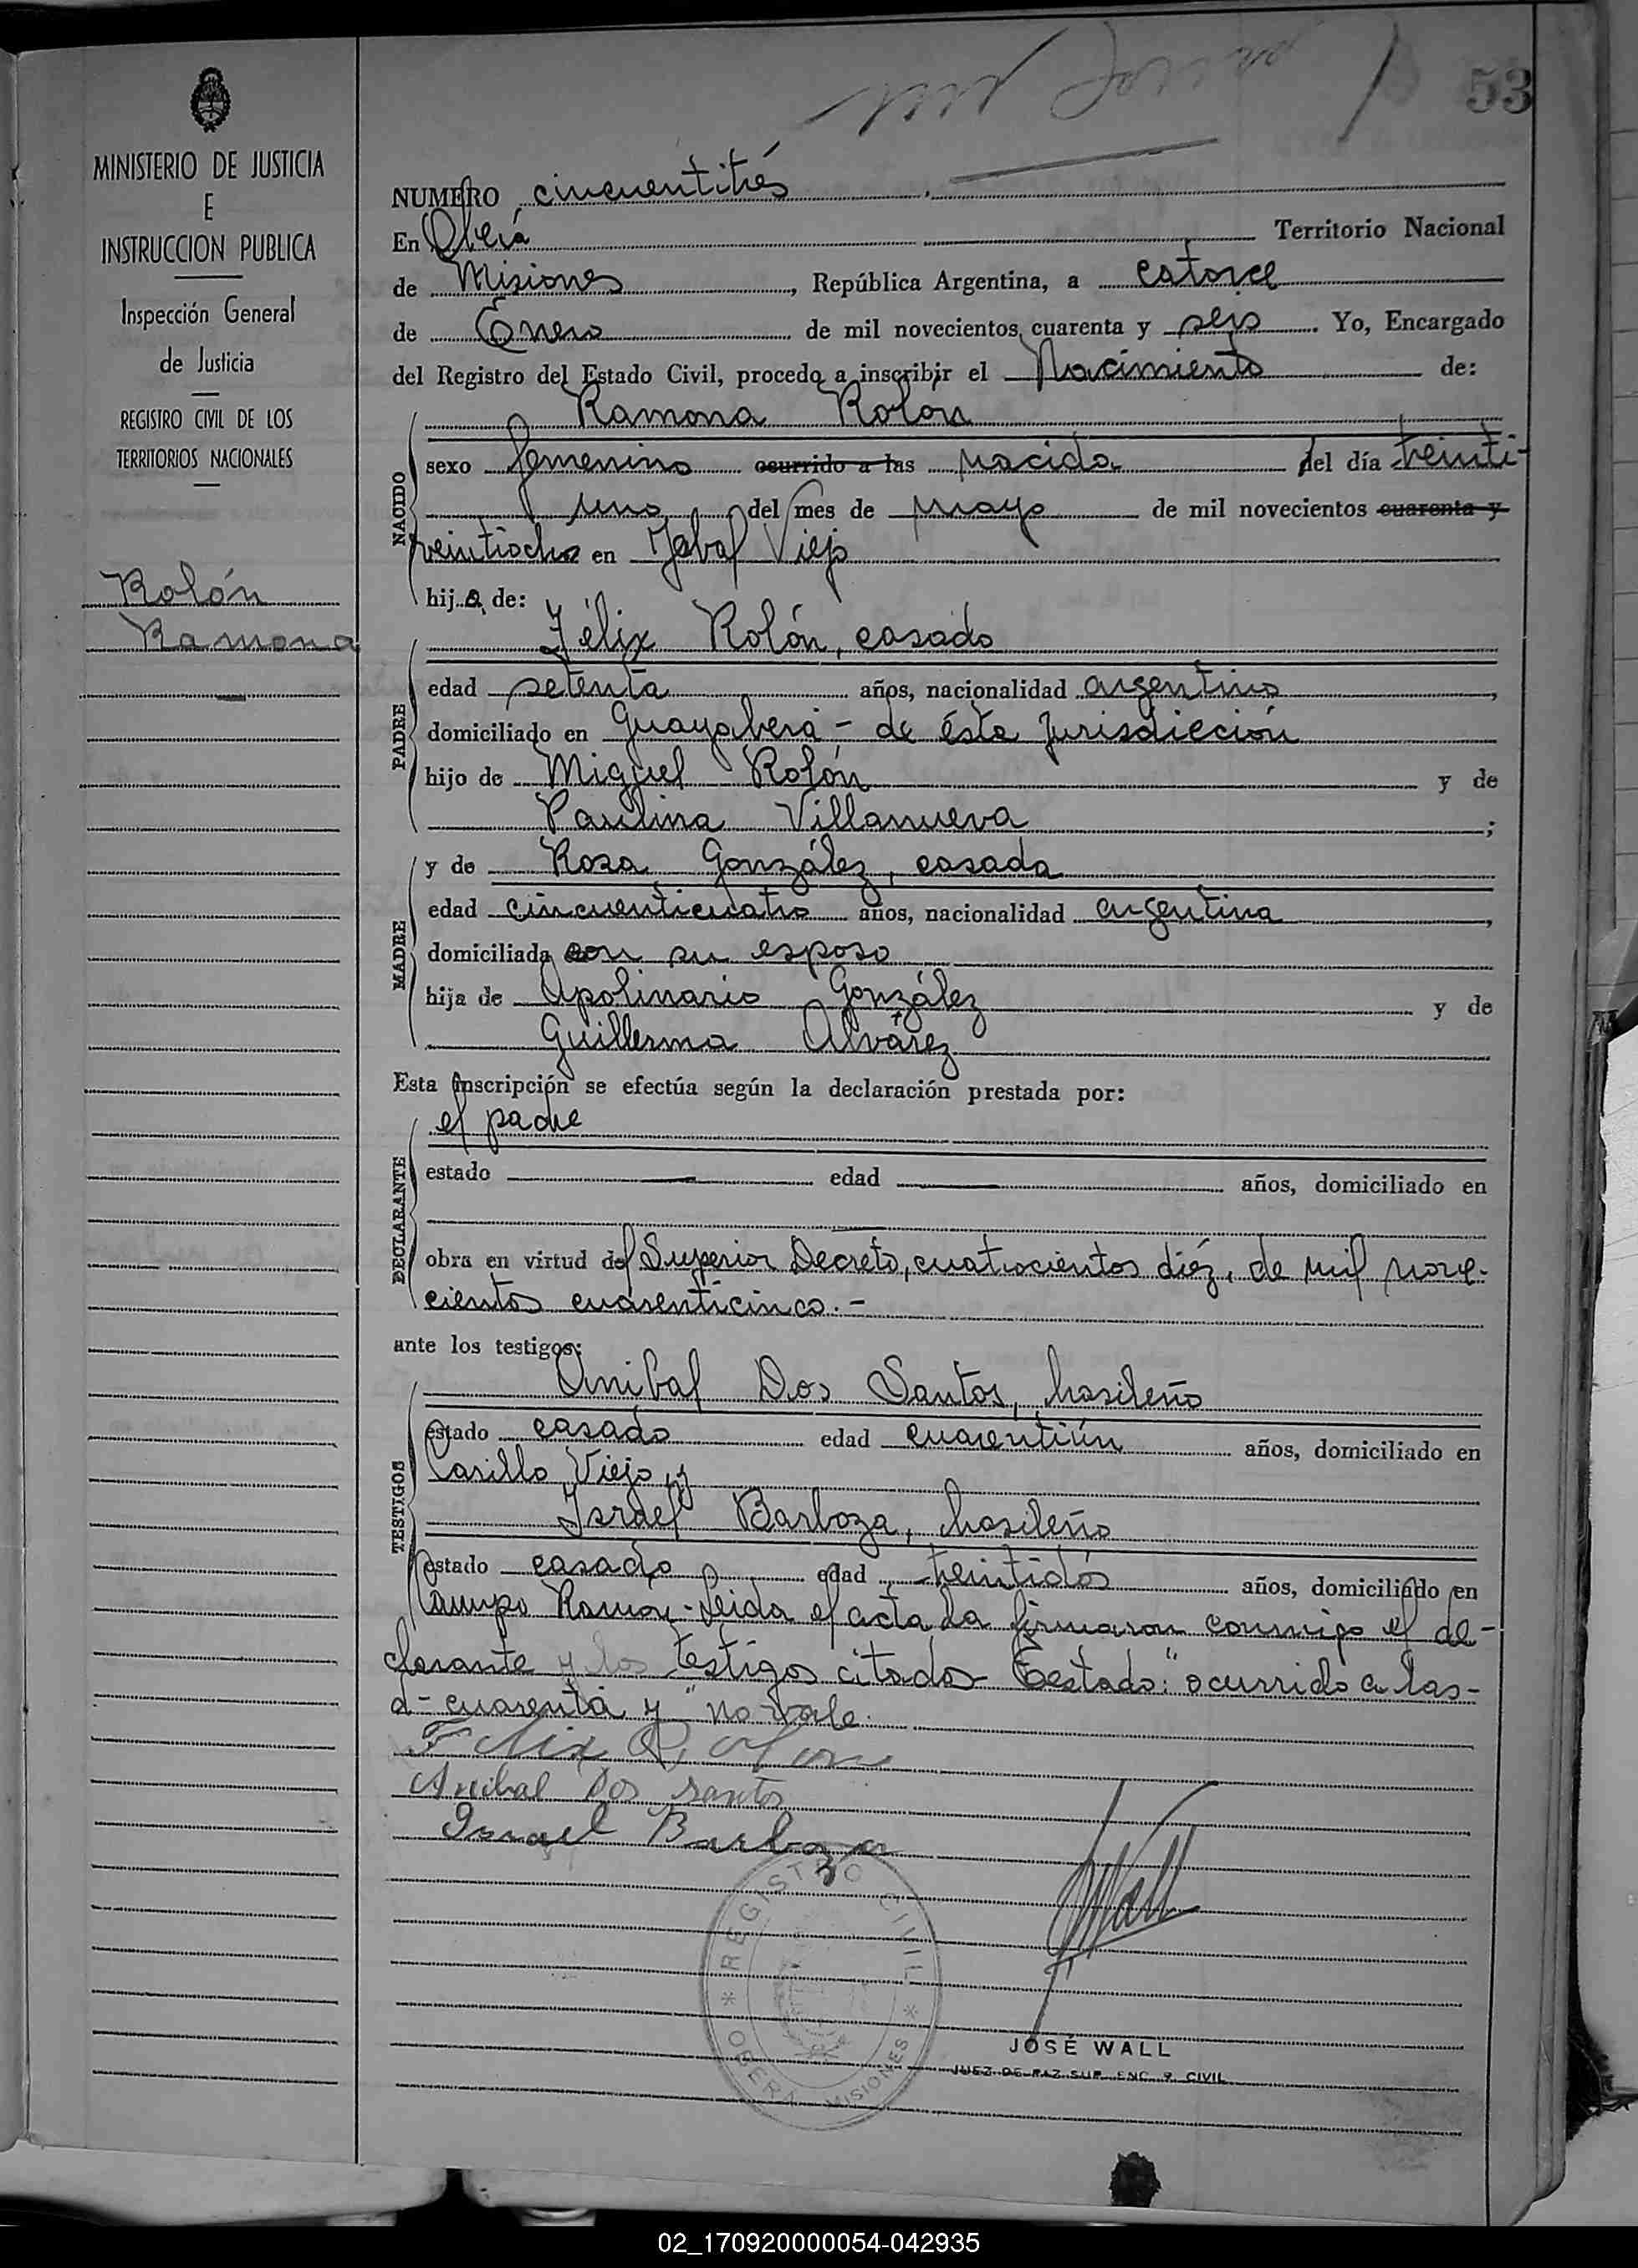 53
MINISTERIO DE JUSTICIA
E
INSTRUCCION PUBLICA
Inspección General
de Justicia
REGISTRO CIVIL DE LOS
TERRITORIOS NACIONALES
Rolón
Ramona
NUMERO cincuentitrés
En Oberá Territorio Nacional
de Misiones, República Argentina, a catorce
de Enero de mil novecientos cuarenta y seis. Yo, Encargado
del Registro del Estado Civil, procedo a inscribir el Nacimiento de:
NACIDO
Ramona Rolón
sexo femenino ocurrido a las nacida del día treinti-
uno del mes de mayo de mil novecientos cuarenta y
veintiocho en Yabal Viejo
hija de:
PADRE
Félix Rolón, casado
edad setenta años, nacionalidad argentino,
domiciliado en Guayaberá - de ésta Jurisdicción
hijo de Miguel Rolón y de
Paulina Villanueva;
MADRE
y de Rosa González, casada
edad cincuenticuatro años, nacionalidad argentina,
domiciliada con su esposo
hija de Apolinario González y de
Guillerma Alvárez
Esta inscripción se efectúa según la declaración prestada por:
DECLARANTE
el padre
estado edad años, domiciliado en
obra en virtud del Superior Decreto, cuatrocientos diéz, de mil nove-
cientos cuarenticinco.-
ante los testigos:
TESTIGOS
Anibal Dos Santos, brasileño
estado casado edad cuarentiún años, domiciliado en
Casillo Viejo, y
Israel Barboza, brasileño
estado casado edad treintidós años, domiciliado en
Campo Ramón - Leida el acta la firmaron conmigo el de-
clarante y los testigos citados Testado: "ocurrido a las-
d- cuarenta y" no vale.
Felix Rolon
Anibal Dos santos
Israel Barboza
Wall
REGISTRO CIVIL
OBERA MISIONES
JOSÉ WALL
JUEZ DE PAZ SUP. ENC. R. CIVIL
02_170920000054-042935